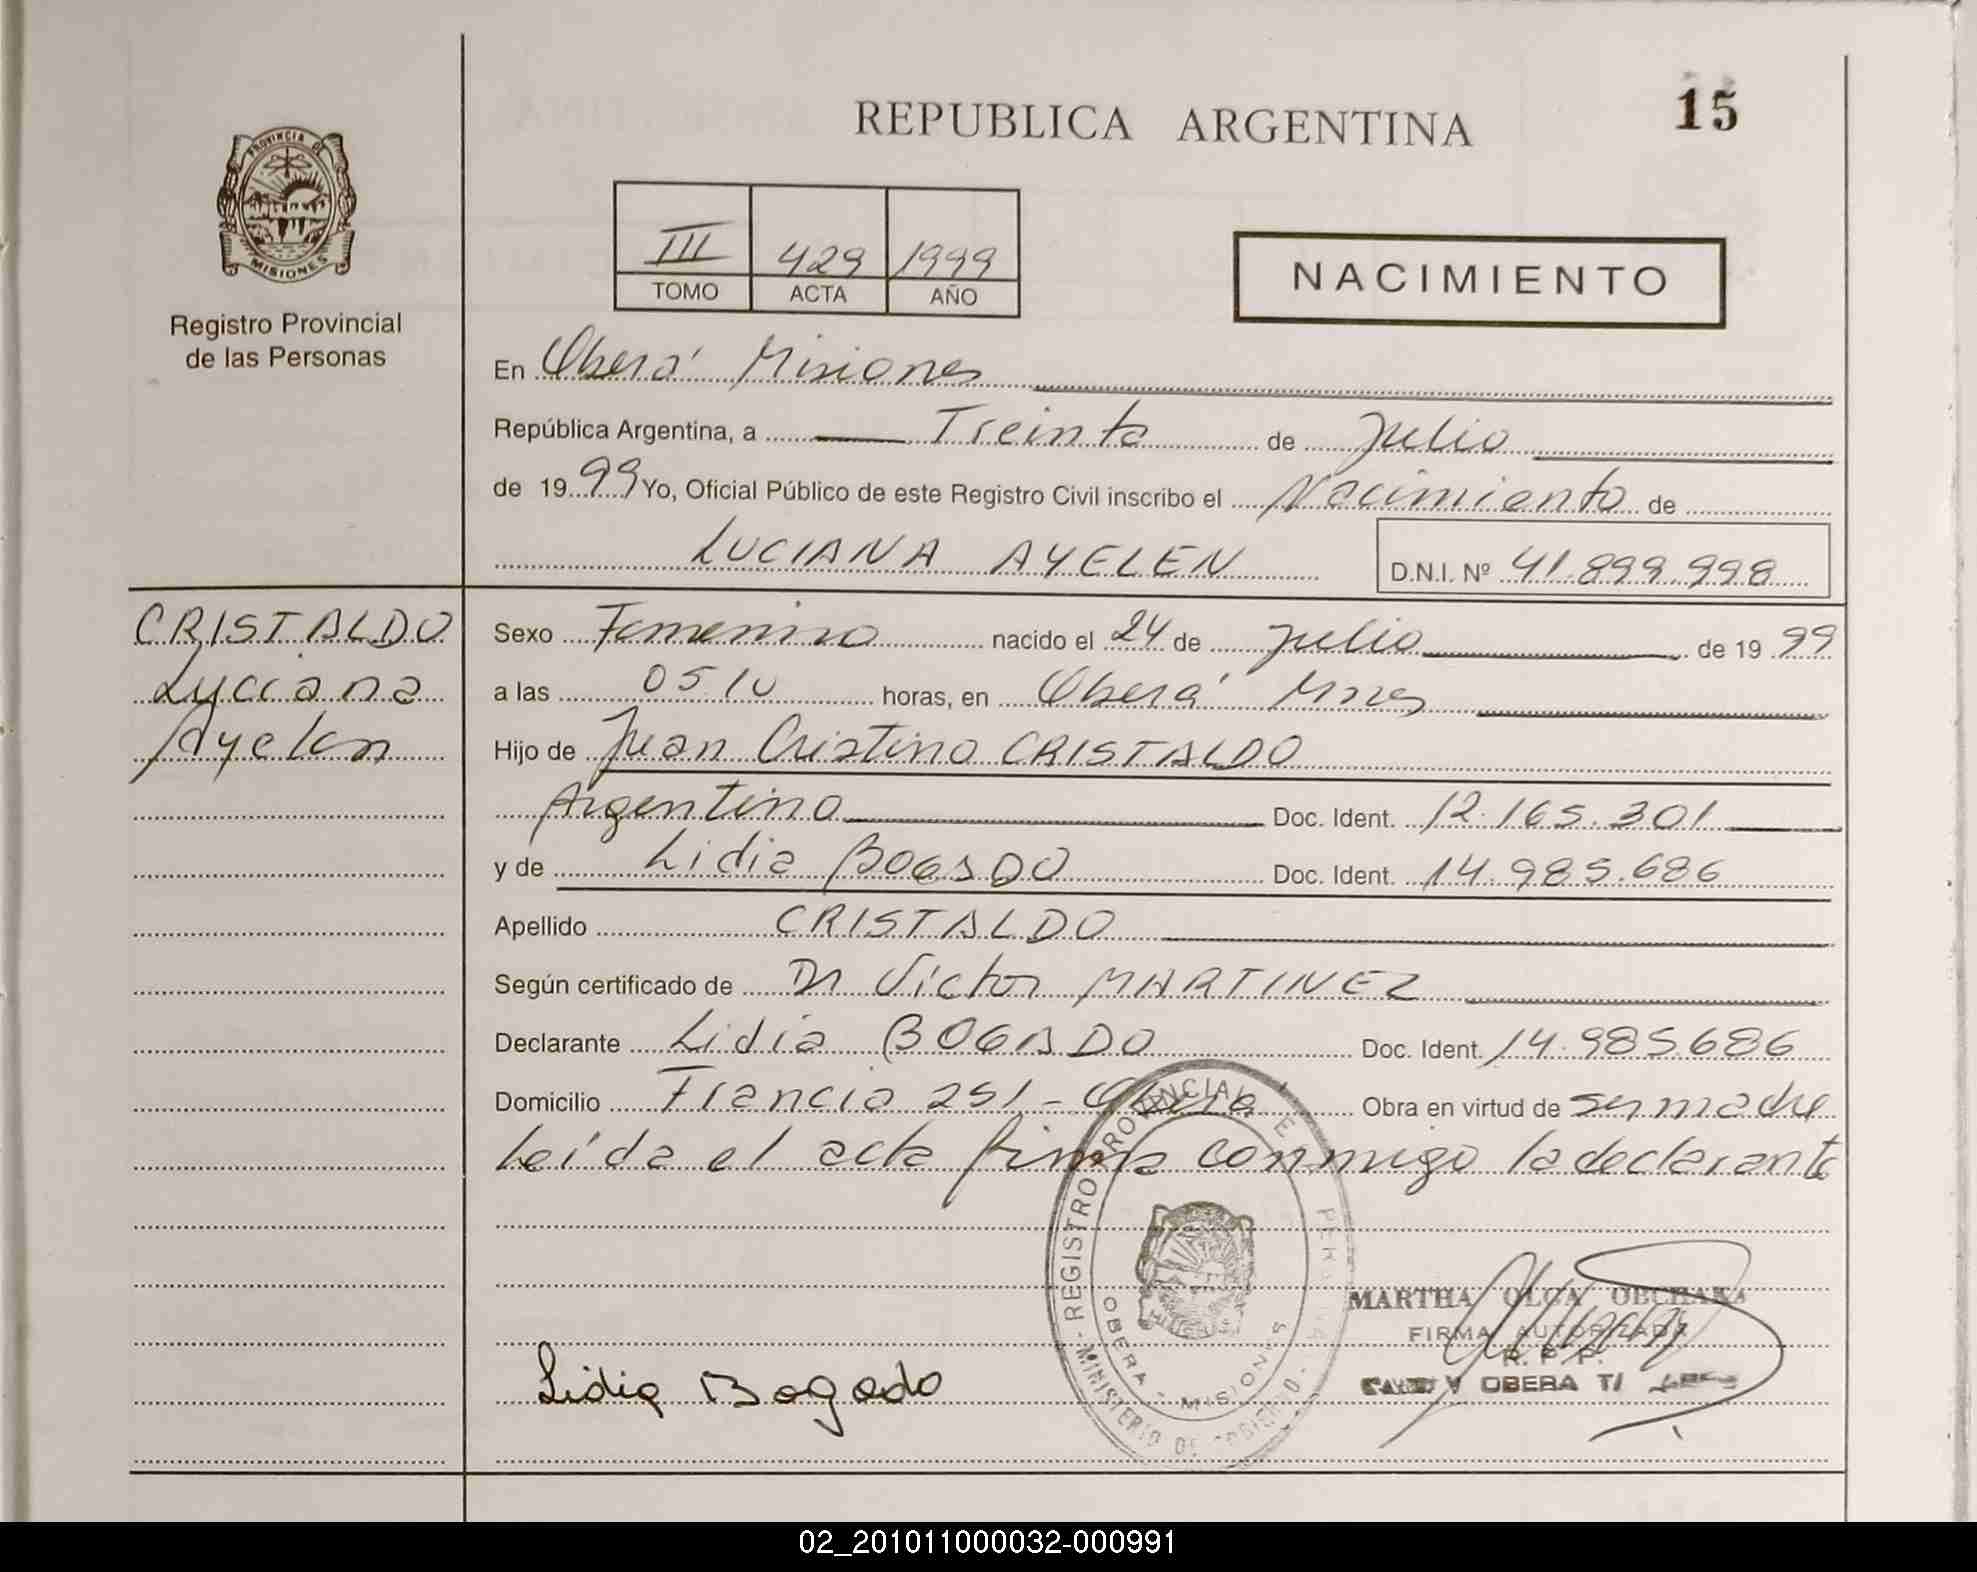 REPUBLICA ARGENTINA
15
PROVINCIA DE
MISIONES
Registro Provincial
de las Personas
III 429 1999
TOMO ACTA AÑO
NACIMIENTO
En Oberá Misiones
República Argentina, a Treinta de Julio
de 1999 Yo, Oficial Público de este Registro Civil inscribo el Nacimiento de
LUCIANA AYELEN D.N.I. Nº 41.899.998
CRISTALDO
Luciana
Ayelen
Sexo Femenino nacido el 24 de Julio de 1999
a las 05.10 horas, en Oberá Mnes
Hijo de Juan Cristino CRISTALDO
Argentino Doc. Ident. 12.165.301
y de Lidia BOGADO Doc. Ident. 14.985.686
Apellido CRISTALDO
Según certificado de Dr Victor MARTINEZ
Declarante Lidia BOGADO Doc. Ident. 14.985.686
Domicilio Francia 251 - Obera Obra en virtud de ser madre
Leída el acta firma conmigo la declarante
REGISTRO PROVINCIAL
OBERA - MISIONES
MINISTERIO DE GOBIERNO
MARTHA OLGA
FIRMA AUTORIZADA
R. P. P.
OBERA
Lidia Bogado
02_201011000032-000991